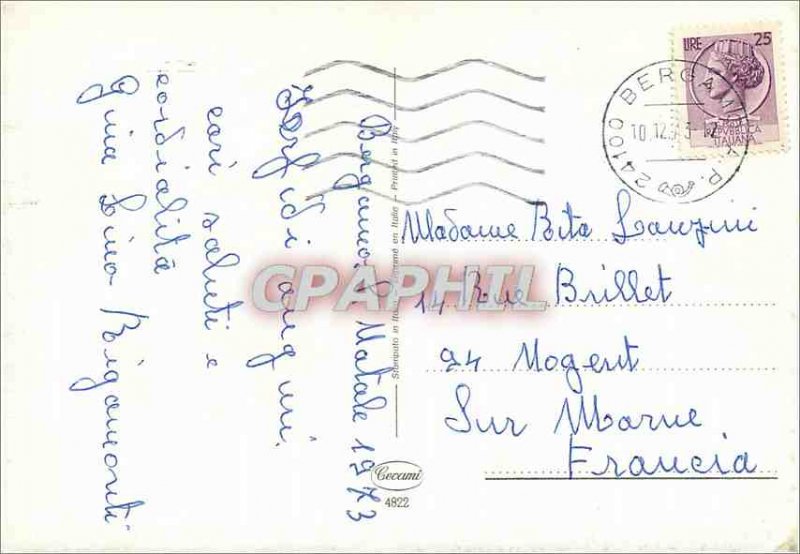 Bergamo S. Natale 1973
Fervidi auguri.
cari saluti e
cordialità
Gina Lino Bigamonti
LIRE 25
REPVBBLICA
ITALIANA
24100 BERGAMO
10.12.73
Stampato in Italia - Imprimé en Italie - Printed in Italy
CPAPHIL
Madame Rita Lanzini
14 Rue Brillet
94 Nogent
Sur Marne
Francia
Cecami
4822